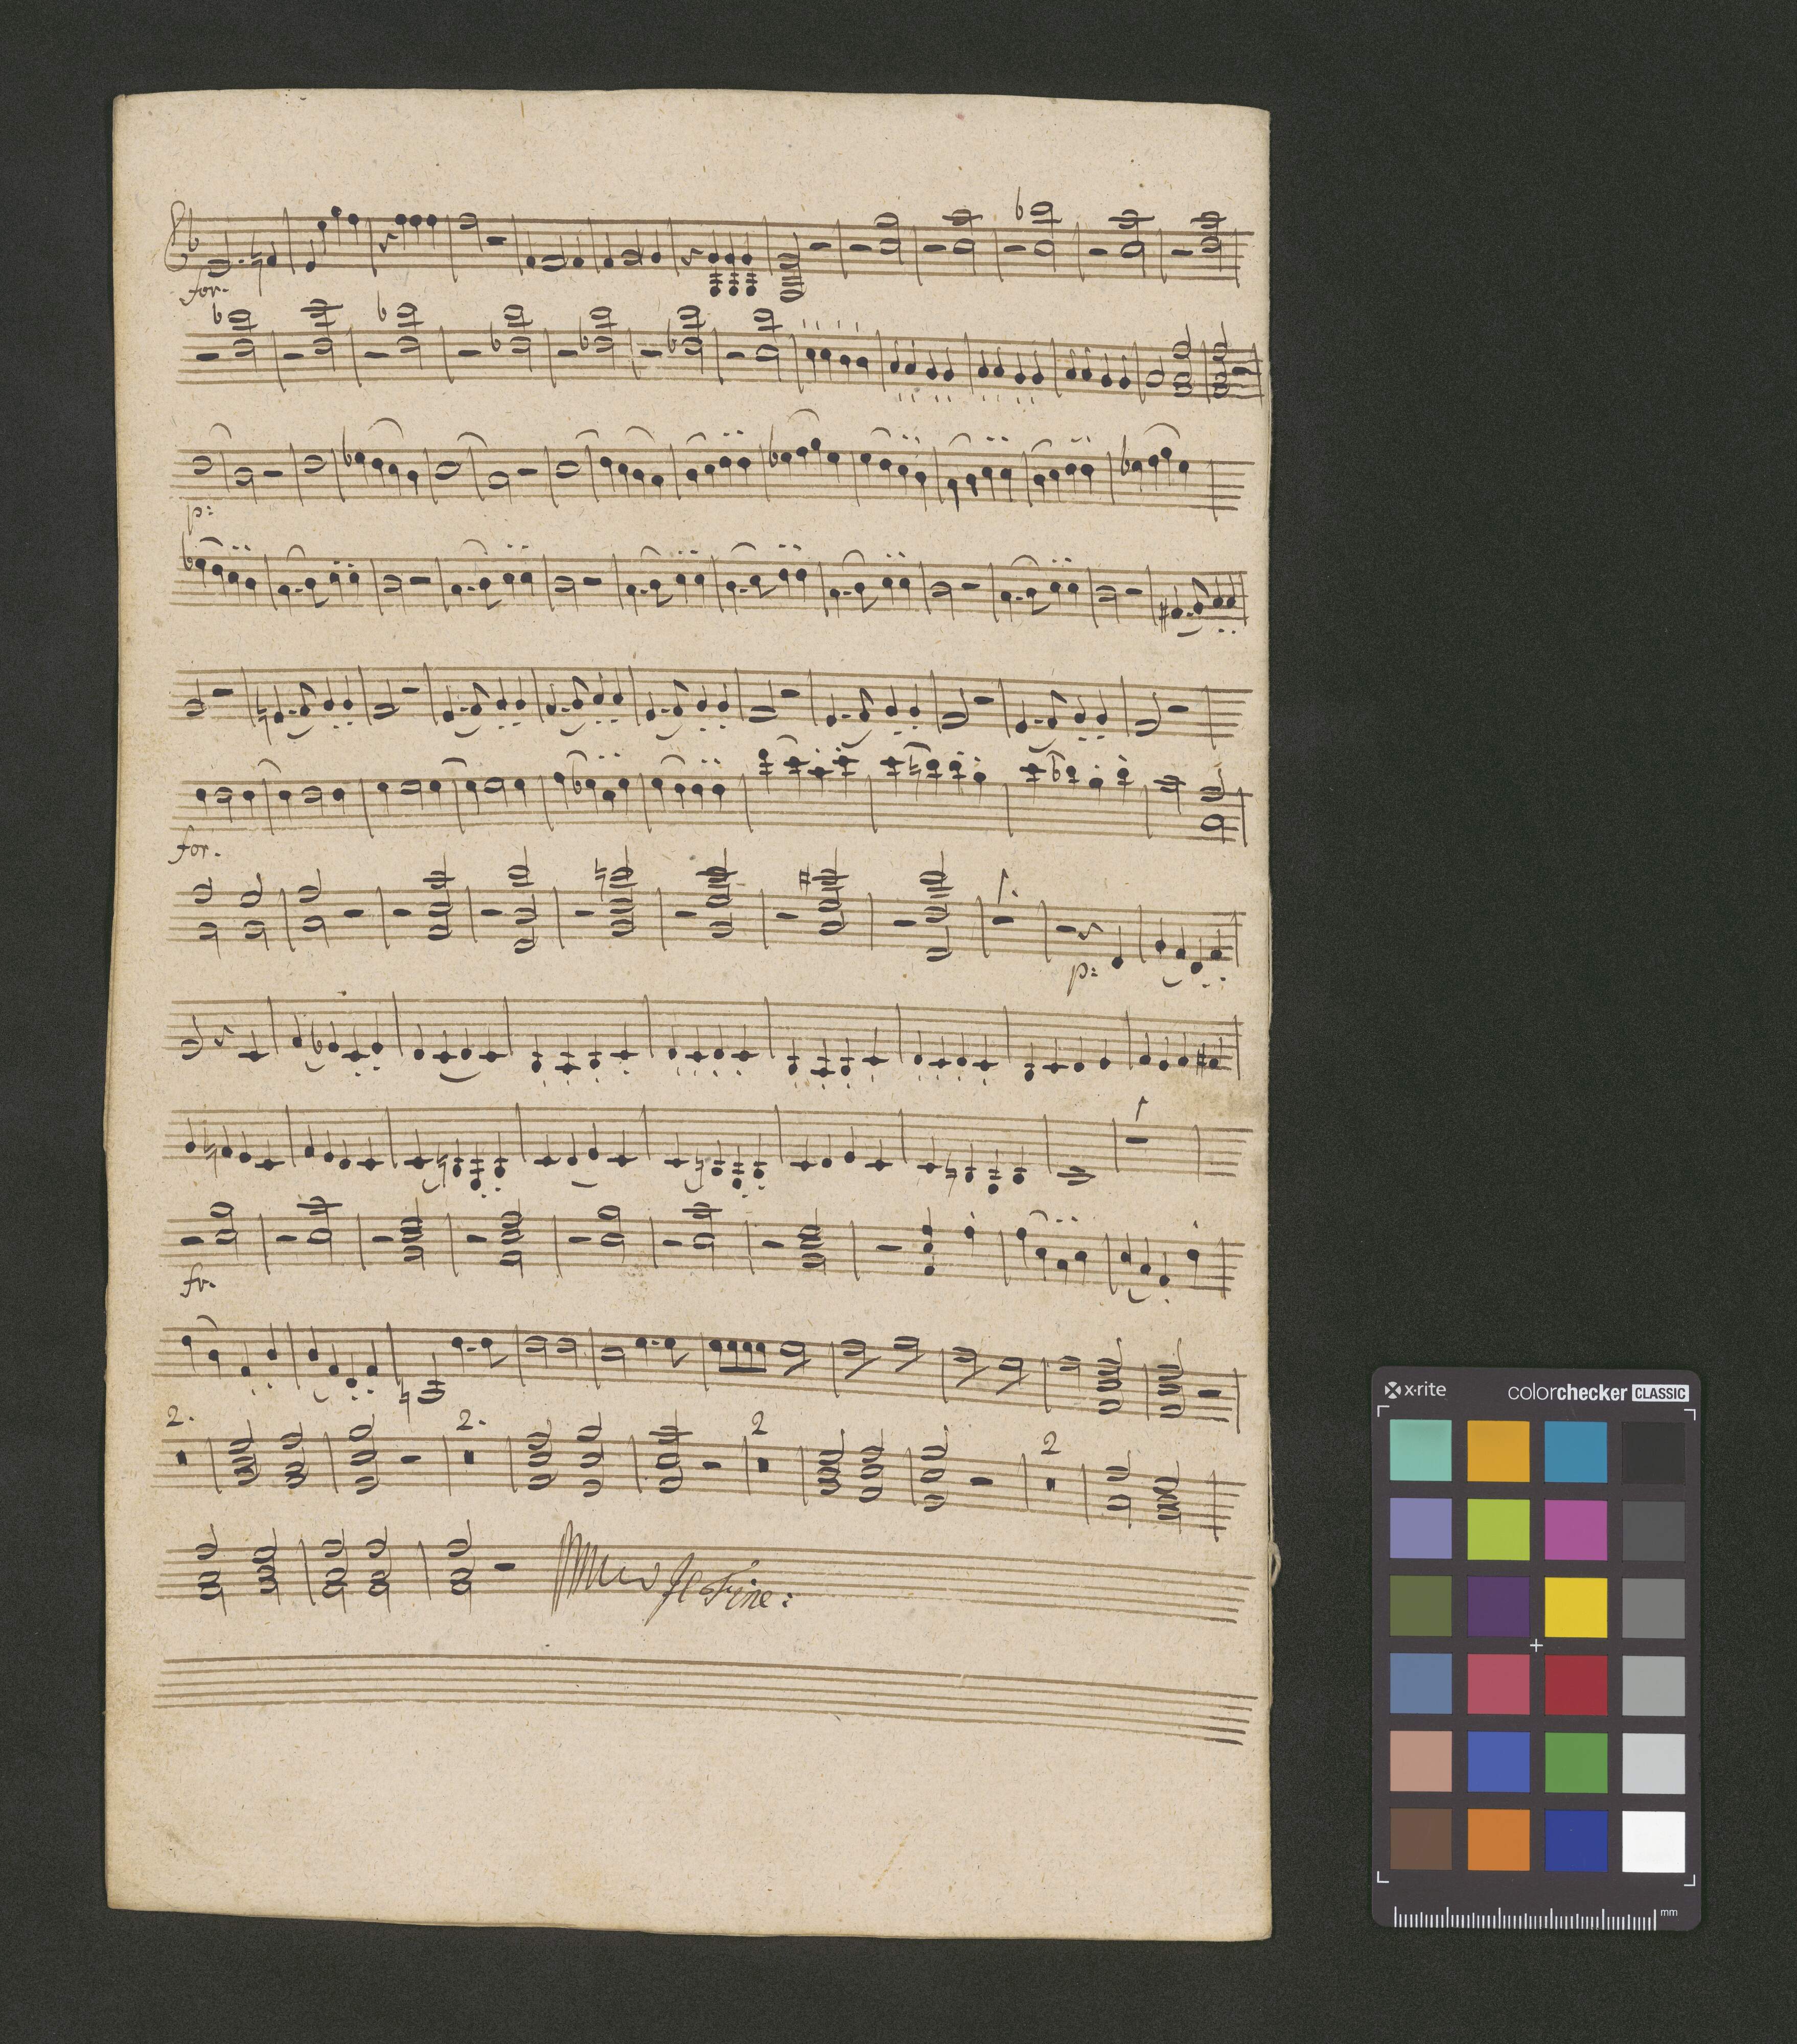 for.
p:
for.
1.
p:
1
fr.
2.
2.
2
2
Il Fine:
x·rite colorchecker CLASSIC
mm